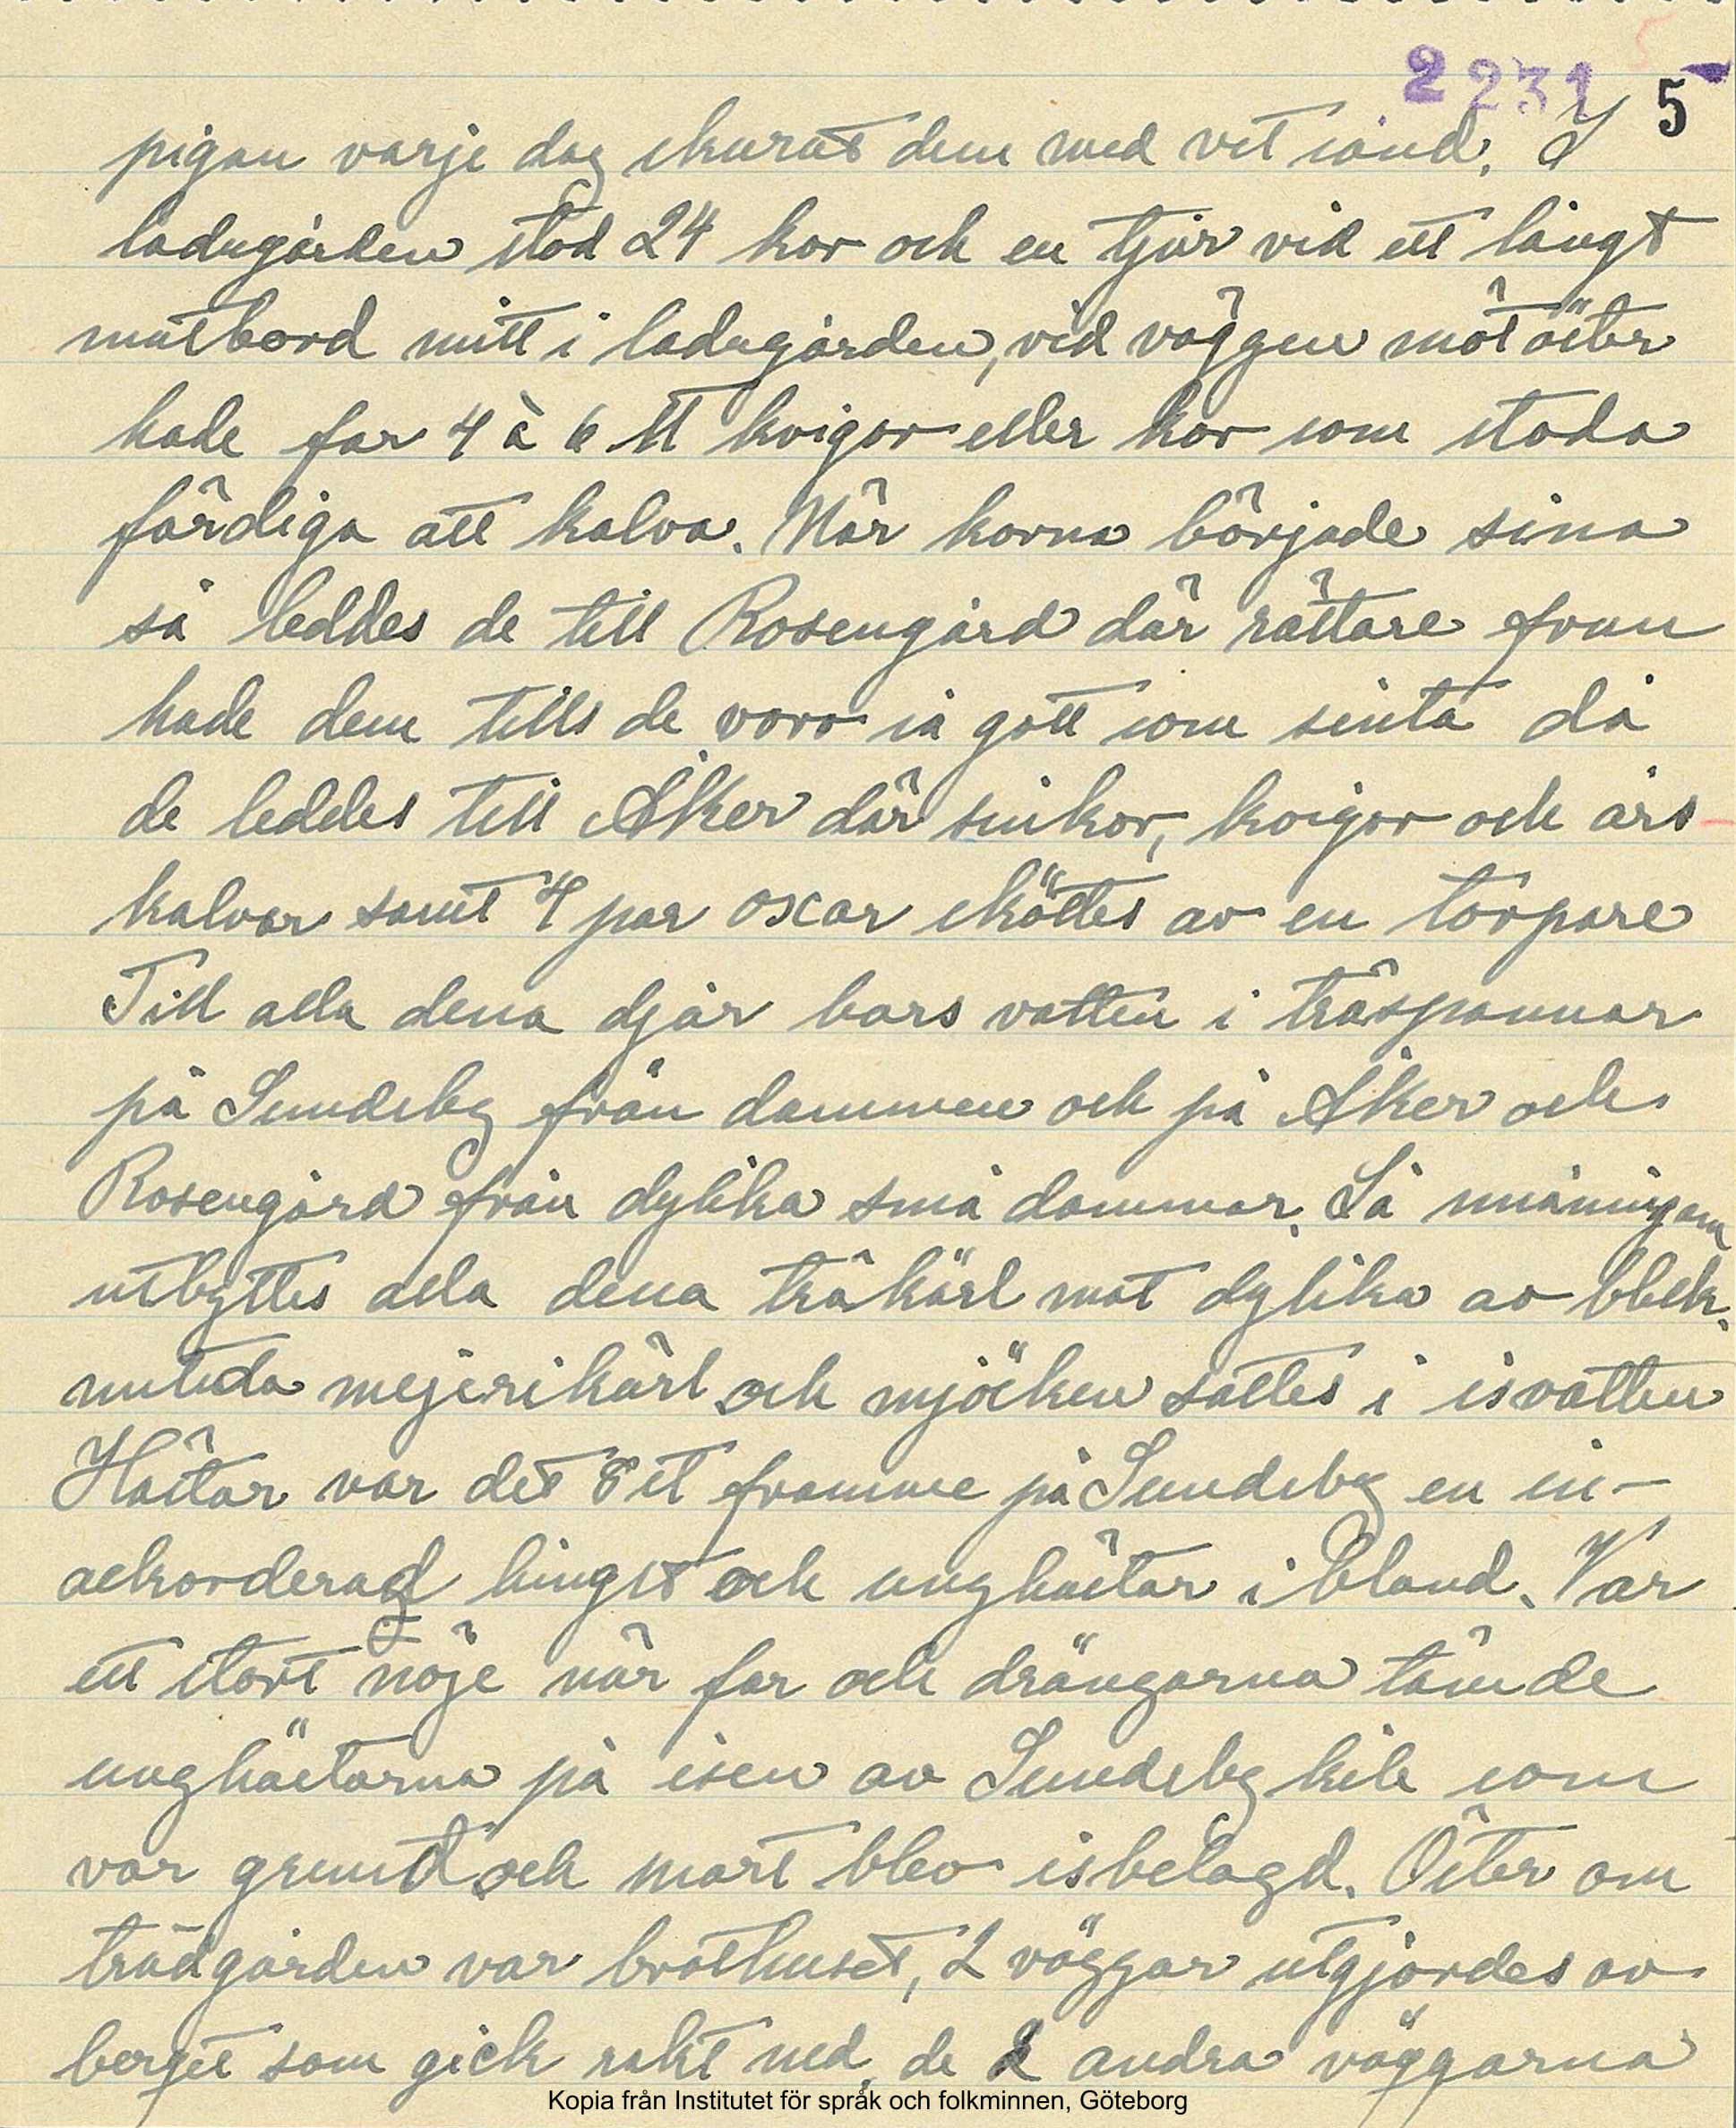 2231 5
pigan varje dag skurat dem med vit sand. I
ladugården stod 24 kor och en tjur vid ett långt
matbord mitt i ladugården, vid väggen mot öster
hade far 4 à 6 st kvigor eller kor som stodo
färdiga att kalva. Når korna började sina
så leddes de till Rosengård där rättare frun
hade dem tills de voro så gott som sinta då
de leddes till Åker där sinkor, kvigor och års
kalvar samt 4 par oxar sköttes av en torpare
Till alla dena djur bars vatten i träspannar
på Sundsby från dammen och på Åker och
Rosengård från dylika små dammar. Så småningom
utbyttes alla dena träkärl mot dylika av bleck.
mejerikärl och mjölken sattes i isvatten
Hästar var det 8 st framme på Sundsby en in-
ackorderad hingst och unghästar i bland. Var
ett stort nöje när far och drängarna tämde
unghästarna på isen av Sundsby kile som
var grund och snart blev isbelagd. Öster om
trädgården var båthuset, 2 väggar utgjordes av
berget som gick rakt ned, de 2 andra väggarna
Kopia från Institutet för språk och folkminnen, Göteborg